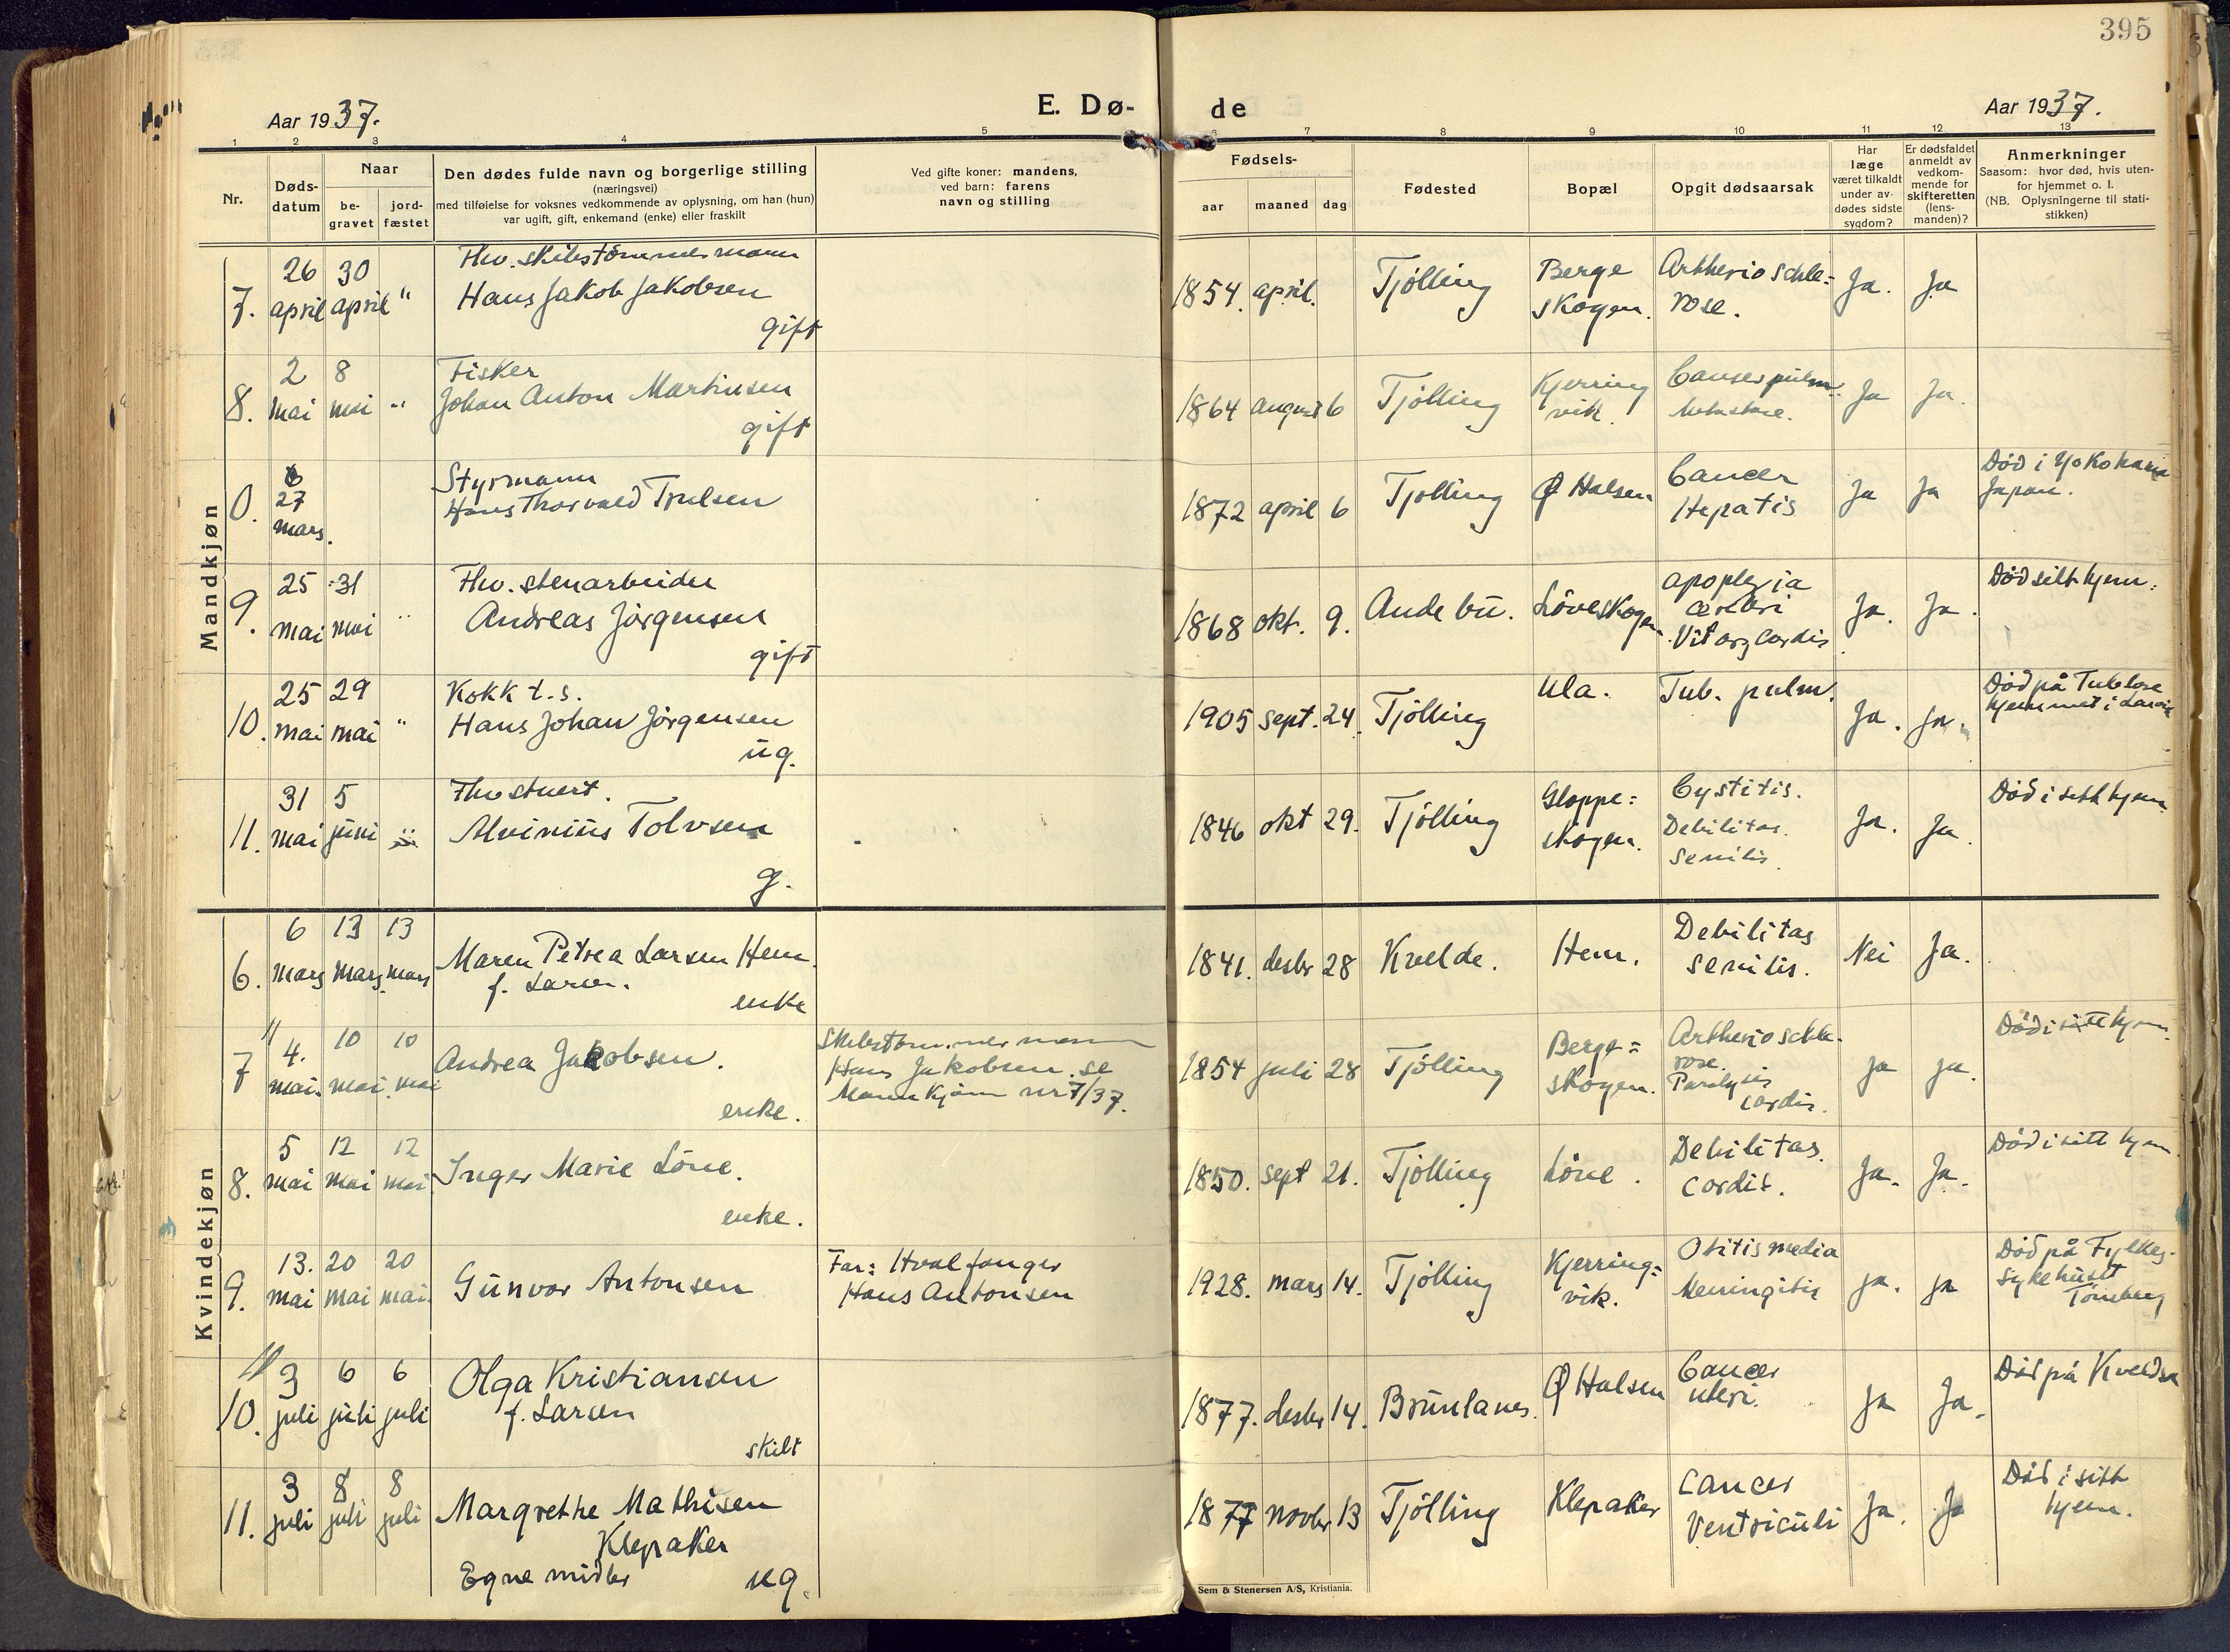 395
Aar 1937.
E. Dø-
de
Aar 1937.
1 2 3 4 5 6 7 8 9 10 11 12 13
Nr.
Døds-
datum
Naar
be-
gravet
jord-
fæstet
Den dødes fulde navn og borgerlige stilling
(næringsvei)
med tilføielse for voksnes vedkommende av oplysning, om han (hun)
var ugift, gift, enkemand (enke) eller fraskilt
Ved gifte koner: mandens,
ved barn: farens
navn og stilling
Fødsels-
aar
maaned
dag
Fødested
Bopæl
Opgit dødsaarsak
Har
læge
været tilkaldt
under av-
dødes sidste
sygdom?
Er dødsfaldet
anmeldt av
vedkom-
mende for
skifteretten
(lens-
manden)?
Anmerkninger
Saasom: hvor død, hvis uten-
for hjemmet o. l.
(NB. Oplysningerne til stati-
stikken)
Mandkjøn
7.
26
april
30
april
"
Fhv. skibstömmermann
Hans Jakob Jakobsen
gift
1854. april.
Tjölling
Berge
skogen.
Artherioschle=
rose.
Ja.
Ja
8.
2
mai
8
mai
"
Fisker
Johan Anton Martinsen
gift
1864 august 6
Tjölling
Kjerring
vik.
Cancer pulm.
Ja
Ja.
0.
27
mars.
Styrmann
Hans Thorvald Trulsen
1872 april 6
Tjölling
Ø Halsen
Cancer
Hepatis
Ja
Ja
Död i Yokohama
Japan.
9.
25
mai
31
mai
"
Fhv. stenarbeider
Andreas Jörgensen
gift
1868 okt. 9.
Andebu.
Löveskogen.
apoplexia
cerebri
Vit org cordis.
Ja.
Ja.
Död i sitt hjem.
10.
25
mai
29
mai
"
Kokk t.s.
Hans Johan Jörgensen
ug.
1905 sept. 24.
Tjölling
Ula.
Tub. pulm.
Ja.
Ja.
Död på Tublose
hjemmet i Larvik
11.
31
mai
5
juni
Fhv stuert.
Alvinius Tolvsen
g.
1846 okt 29.
Tjölling
Gloppe=
skogen.
Cystitis.
Debilitas.
senilis.
Ja.
Ja.
Död i sitt hjem
Kvindekjøn
6.
6
mars
13
mars
13
mars
Maren Petrea Larsen Hem.
f. Larsen.
enke
1841. desbr 28
Kvelde.
Hem.
Debilitas
senilis.
Nei
Ja.
7
4.
mai.
10
mai
10
mai
Andrea Jakobsen.
enke.
Skibstömmermann
Hans Jakobsen. se
Mannkjönn nr 7/37.
1854 juli 28
Tjölling
Berge=
skogen.
Artherioschle-
rose.
Paralysis
cordis.
Ja
Ja.
Död i sitt hjem.
8.
5
mai
12
mai
12
mai
Inger Marie Löve.
enke.
1850. sept 21.
Tjölling
Löve.
Debilitas.
cordis.
Ja.
Ja.
Död i sitt hjem
9.
13.
mai
20
mai
20
mai.
Gunvor Antonsen
Far: Hvalfanger
Hans Antonsen
1928. mars 14.
Tjölling
Kjerring=
vik.
Otitis media
Meningitis
Ja.
Ja
Död på Fylkes-
sykehuset
Tönsberg
10.
3
juli
6
juli
6
juli
Olga Kristiansen
f. Larsen
skilt
1877. desbr 14.
Brunlanes.
Ø Halsen
Cancer
uteri.
Ja
Ja.
Död på Kvelde
11.
3
juli
8
juli
8
juli
Margrethe Mathisen
Klepaker
Egne midler
ug.
1877 novbr 13
Tjölling
Klepaker
Cancer
Ventriculi
Ja.
Ja
Död i sitt
hjem.
Sem & Stenersen A/S, Kristiania.